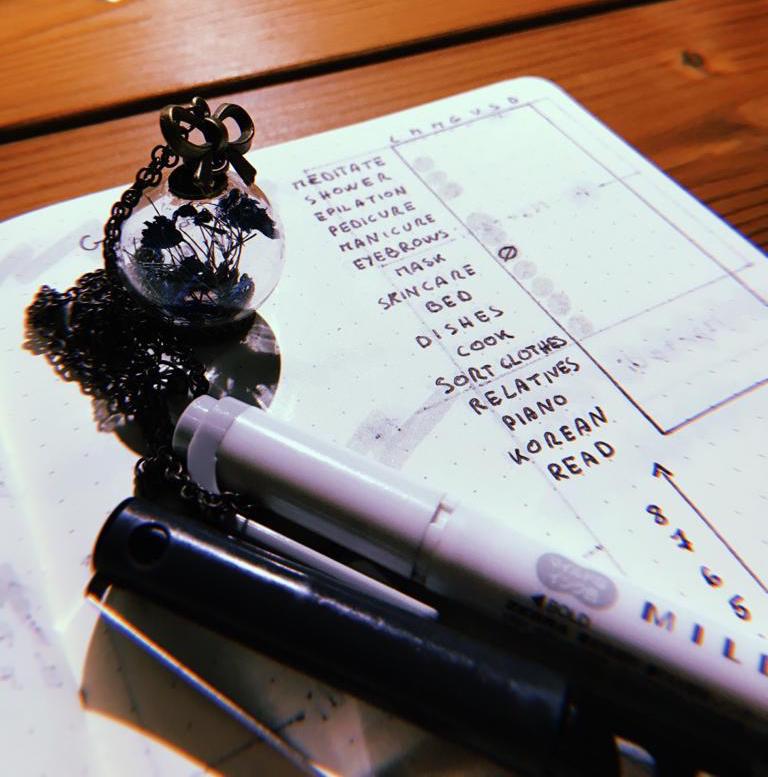 L M M G V S D
MEDITATE
SHOWER
EPILATION
PEDICURE
MANICURE
EYEBROWS
MASK
SKINCARE
BED
DISHES
COOK
SORT CLOTHES
RELATIVES
PIANO
KOREAN
READ
8
7
6
5
BOLD
MILD